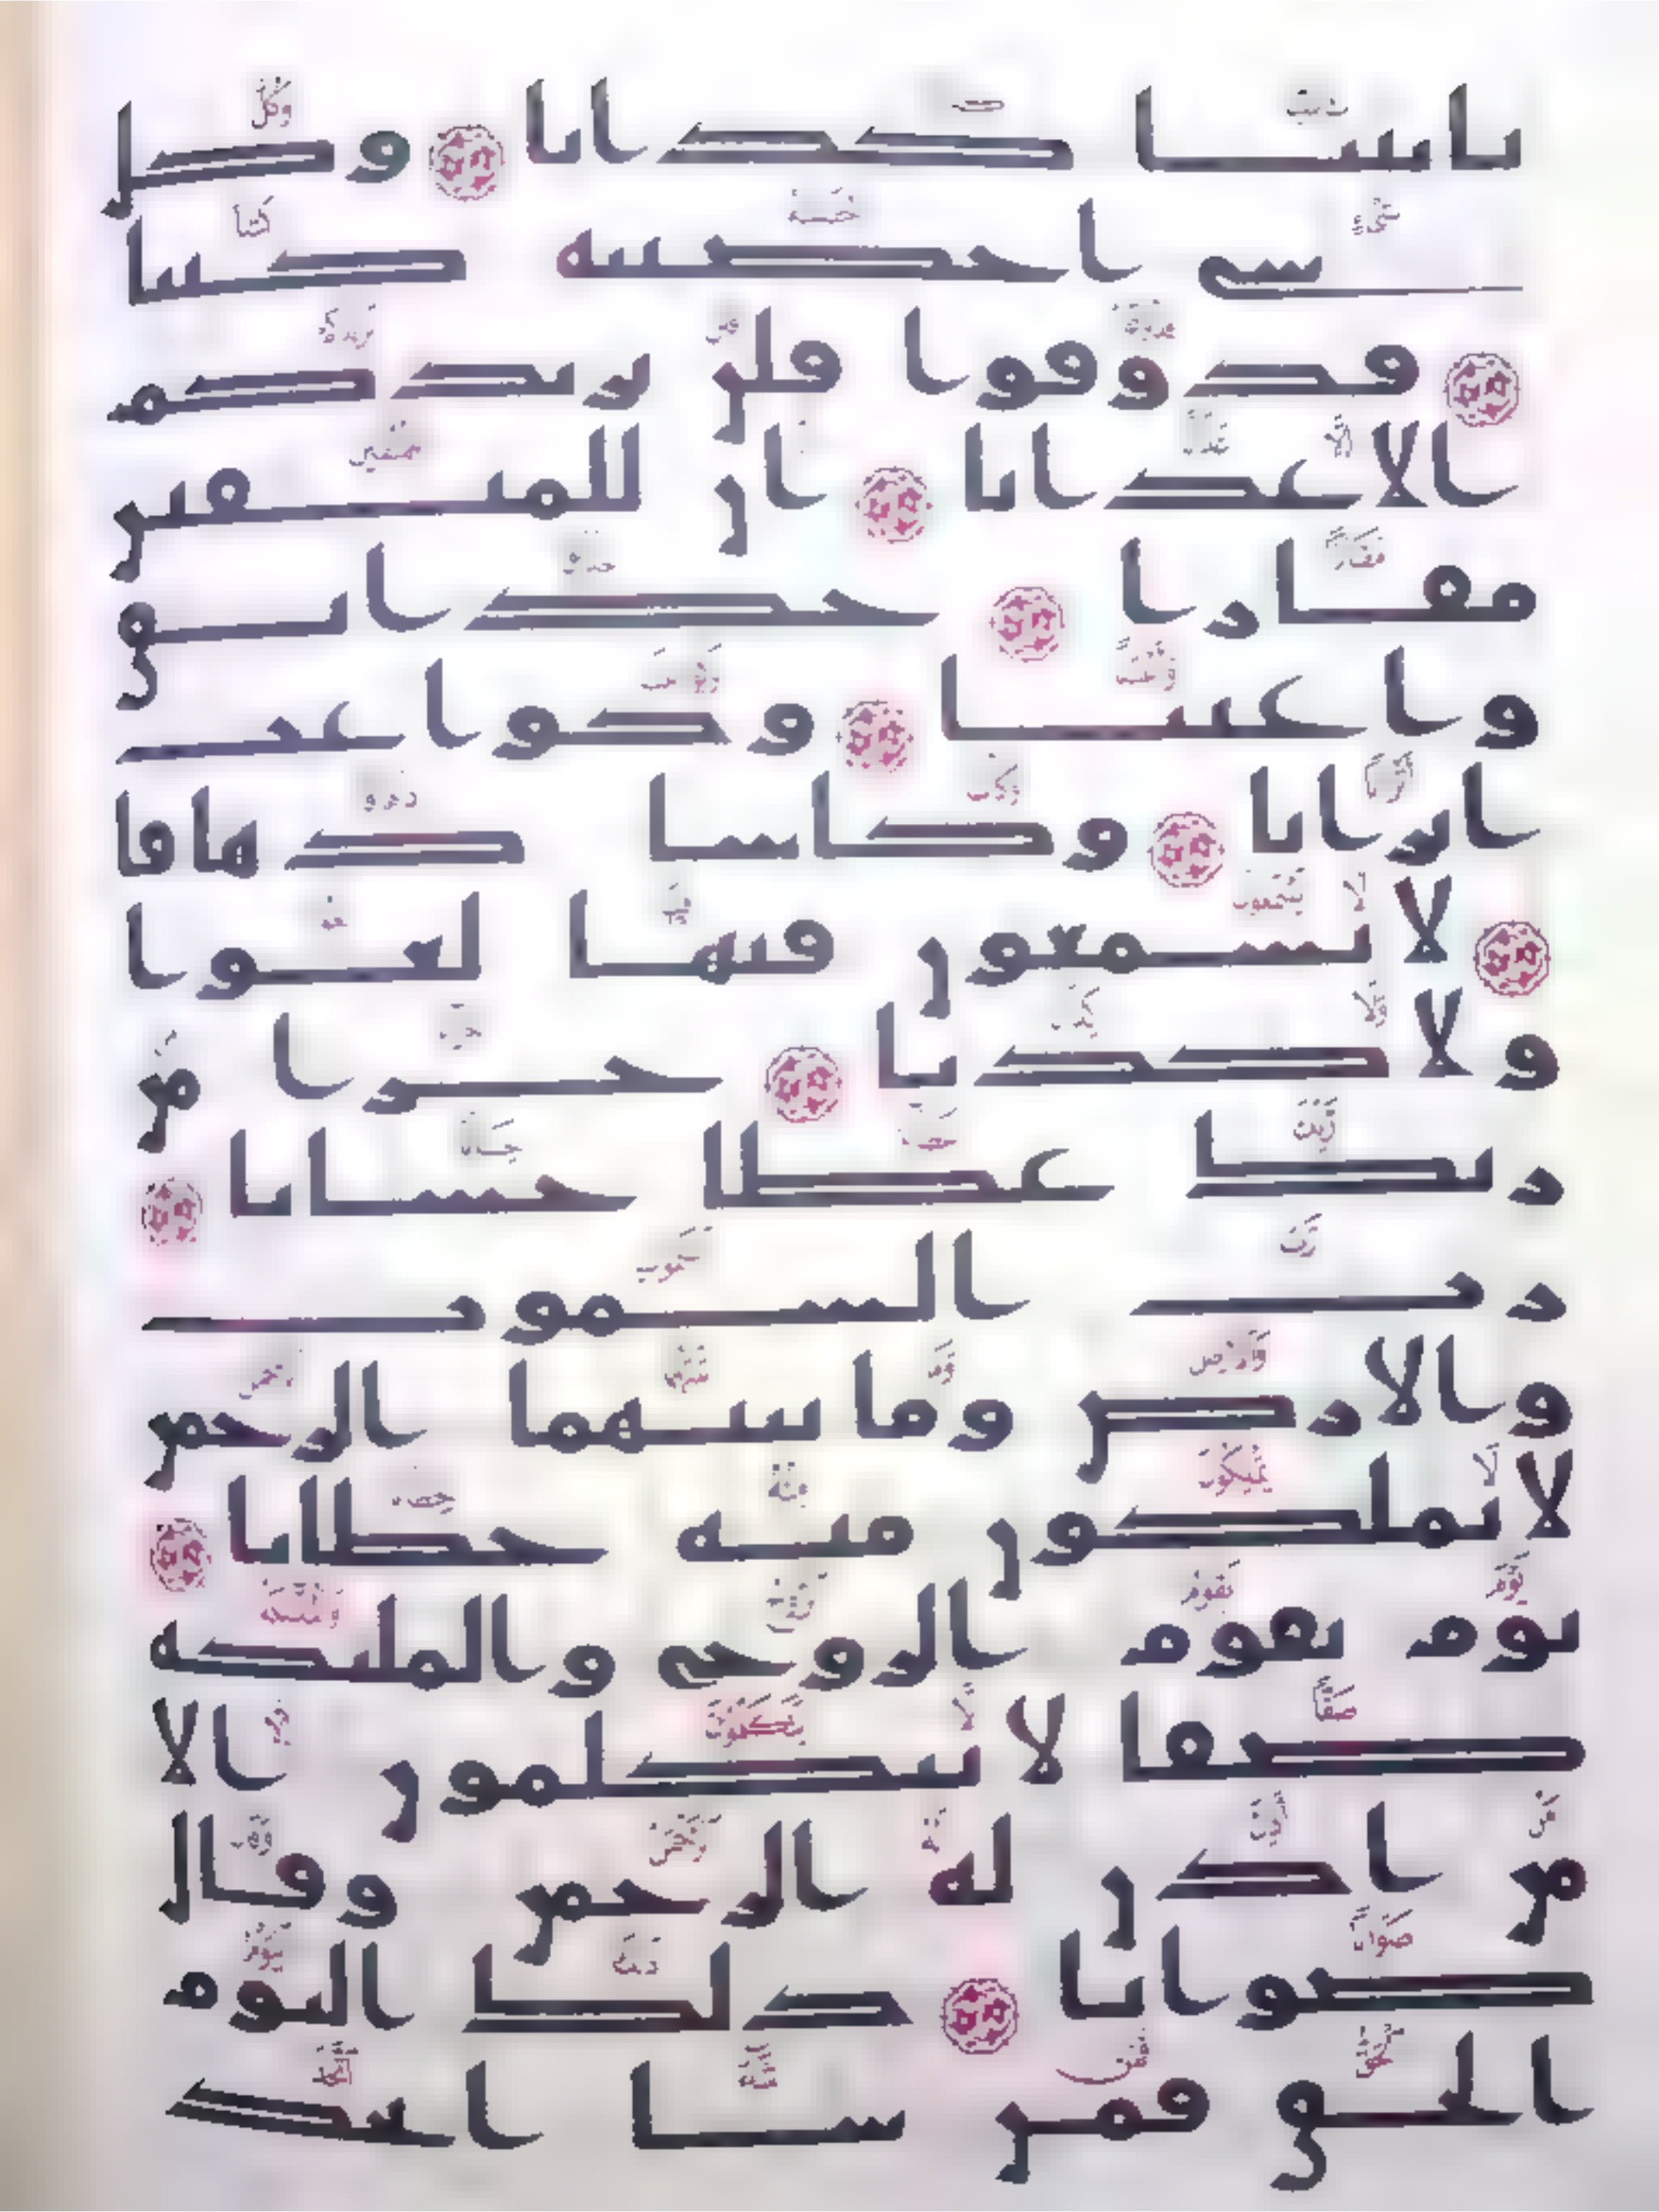 بايتنا كذابا وكل
شى احصينه كتبا
فذوقوا فلن نزيدكم
الا عذابا ان للمتقين
مفازا حدايق
واعنبا وكواعب
اترابا وكاسا دهاقا
لا يسمعون فيها لغوا
ولا كذبا جزا من
ربك عطا حسابا
رب السموت
والارض وما بينهما الرحمن
لا يملكون منه خطابا
يوم يقوم الروح والمليكه
صفا لا يتكلمون الا
من اذن له الرحمن وقال
صوابا ذلك اليوم
الحق فمن شا اتخذ